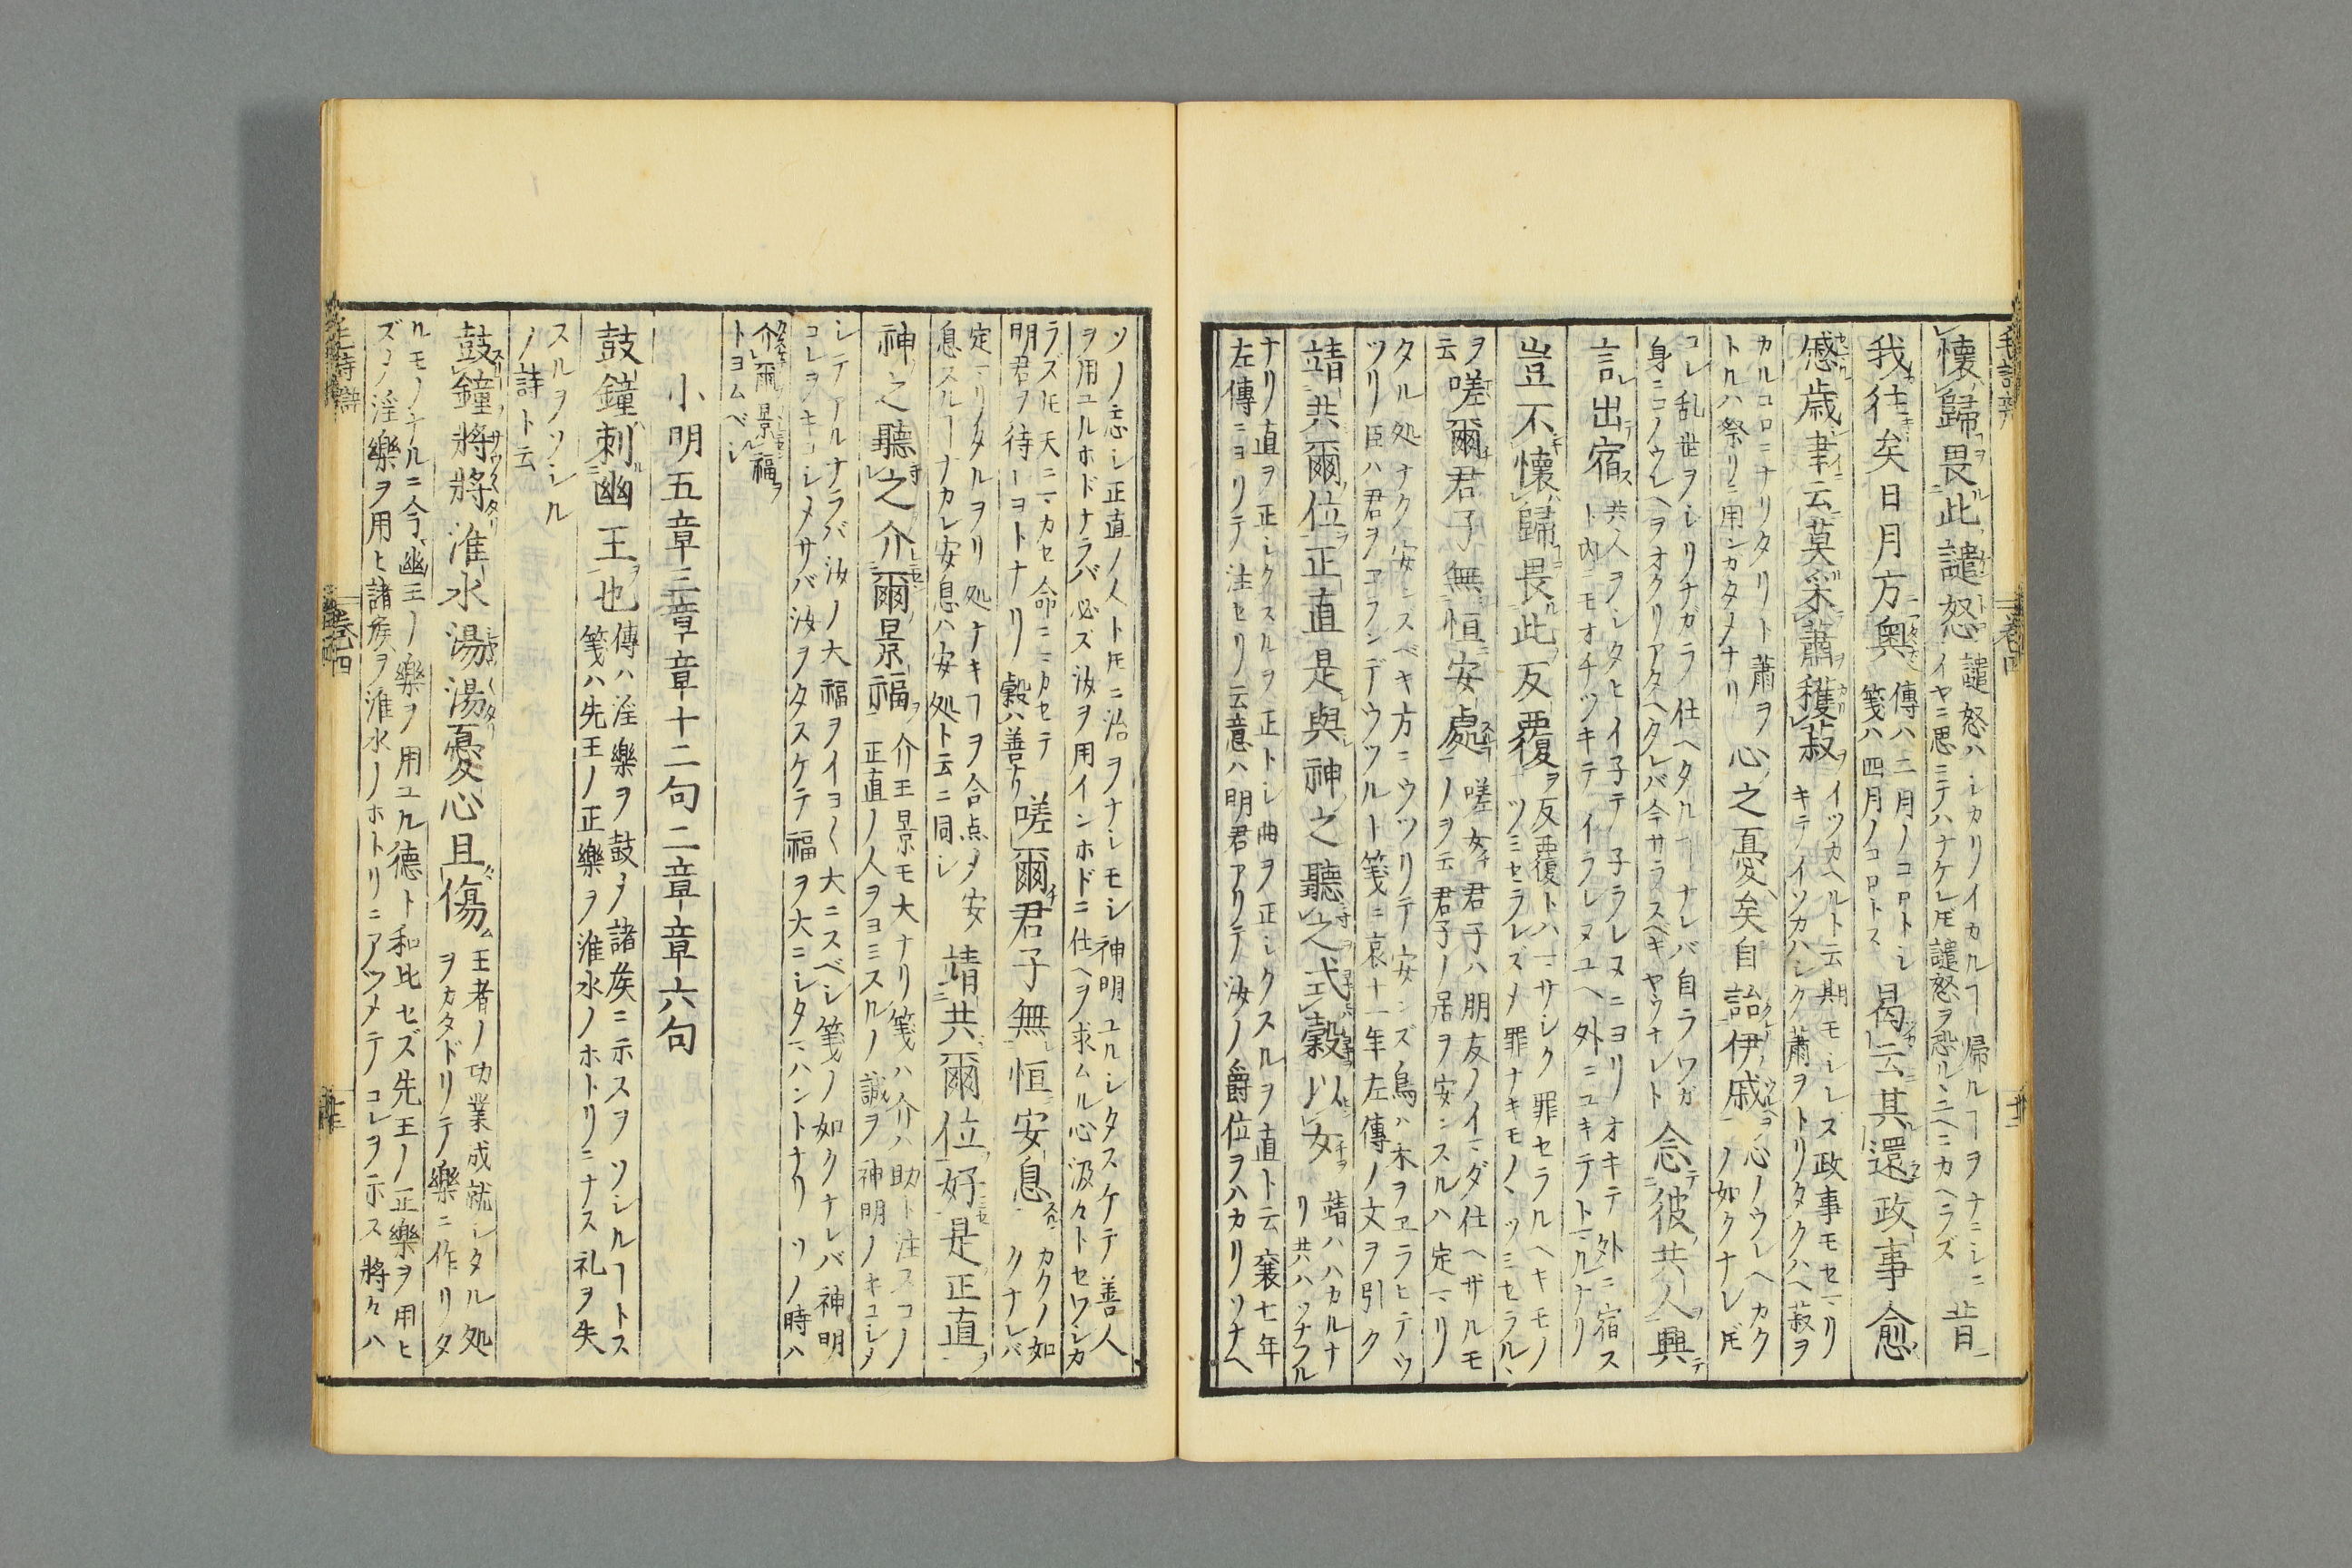 懷歸畏此譴怒 譴怒ハシカリノイカルヿ帰ルヿヲナニシニ
イヤニ思ニテハナケレ𪜈譴怒ヲ恐ルヽユヘニカヘラズ 昔
我往矣日月方奧 傳ハ二月ノコロトシ
箋ハ四月ノコロトス 曷云其還政事愈
慼歳聿云莫采蕭穫菽 イツカヘルト云期モシレズ政事モセマリ
キテイソカハシク蕭ヲトリタクハヘ菽ヲ
カルコロニナリタリト蕭ヲ
トルハ祭リニ用ンカタメナリ 心之憂矣自詒伊戚 心ノウレヘカク
ノ如クナレ𪜈
コレ乱世ヲシリナガラ仕ヘタルヿナレバ自ラワガ
身ニコノウレヘヲオクリアタヘタレバ今サラスベキヤウナレト 念彼共人興
言出宿 共人ヲシタヒイ子テ子ラレヌニヨリオキテ外ニ宿ス
ト内ニモオチツキテイラレヌユヘ外ニユキテトマルナリ
豈不懷歸畏此反覆 反覆トハマサシク罪セラルヘキモノ
ツミセラレズメ罪ナキモノヽツミセラルヽ
ヲ
云 嗟爾君子無恒安處 嗟女君子ハ朋友ノイマダ仕ヘザルモ
ノヲ云君子ノ居ヲ安ンスルハ定マリ
タル処ナク安ンスベキ方ニウツリテ安ンズ鳥ハ木ヲヱラヒテウ
ツリ臣ハ君ヲヱランデウツルト箋ニ哀十一年左傳ノ文ヲ引ク
靖共爾位正直是與神之聽之式穀以女 靖ハハカルナ
リ共ハソナフル
ナリ直ヲ正シクスルヲ正トシ曲ヲ正シクスルヲ直ト云襄七年
左傳ニヨリテ注セリ云意ハ明君アリテ汝ノ爵位ヲハカリソナヘ
ソノ志シ正直ノ人ト𪜈ニ治ヲナシモシ神明ユルシタスケテ善人
ヲ用ユルホドナラバ必ズ汝ヲ用インホドニ仕ヘヲ求ムル心汲々トセワシカ
ラズ𪜈天ニマカセ命ニマカセテ
明君ヲ待ートヨトナリ穀ハ善ナリ 嗟爾君子無恒安息 カクノ如
クナレバ
定マリタルヲリ処ナキヿヲ合点メ安
息スルヿナカレ安息ハ安処ト云ニ同シ 靖共爾位好是正直
神之聽之介爾景福 介王景モ大ナリ箋ハ介ハ助ト注スコノ
正直ノ人ヲヨミスルノ誠ヲ神明ノキコシメ
シテアルナラバ汝ノ大福ヲイヨ〱大ニスベシ箋ノ如クナレバ神明
コレヲキコシメサバ汝ヲタスケテ福ヲ大ニシタマハントナリソノ時ハ
介爾景福
トヨムベシ
小明五章三章章十二句二章章六句
鼓鐘刺幽王也 傳ハ淫樂ヲ鼓メ諸矦ニ示スヲソシルヿトス
箋ハ先王ノ正樂ヲ淮水ノホトリニナス礼ヲ失
スルヲソシル
ノ詩ト云
鼓鐘將將淮水湯湯憂心且傷 王者ノ功業成就シタル処
ヲカタドリテ樂ニ作リタ
ルモノナルニ今幽王ノ樂ヲ用ユル德ト和比セズ先王ノ正樂ヲ用ヒ
ズメ淫樂ヲ用ヒ諸矦ヲ淮水ノホトリニアツメテコレヲ示ス將々ハ